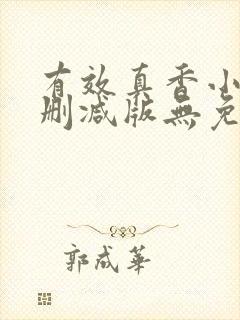 有效真香小
删减版無免
郭成華